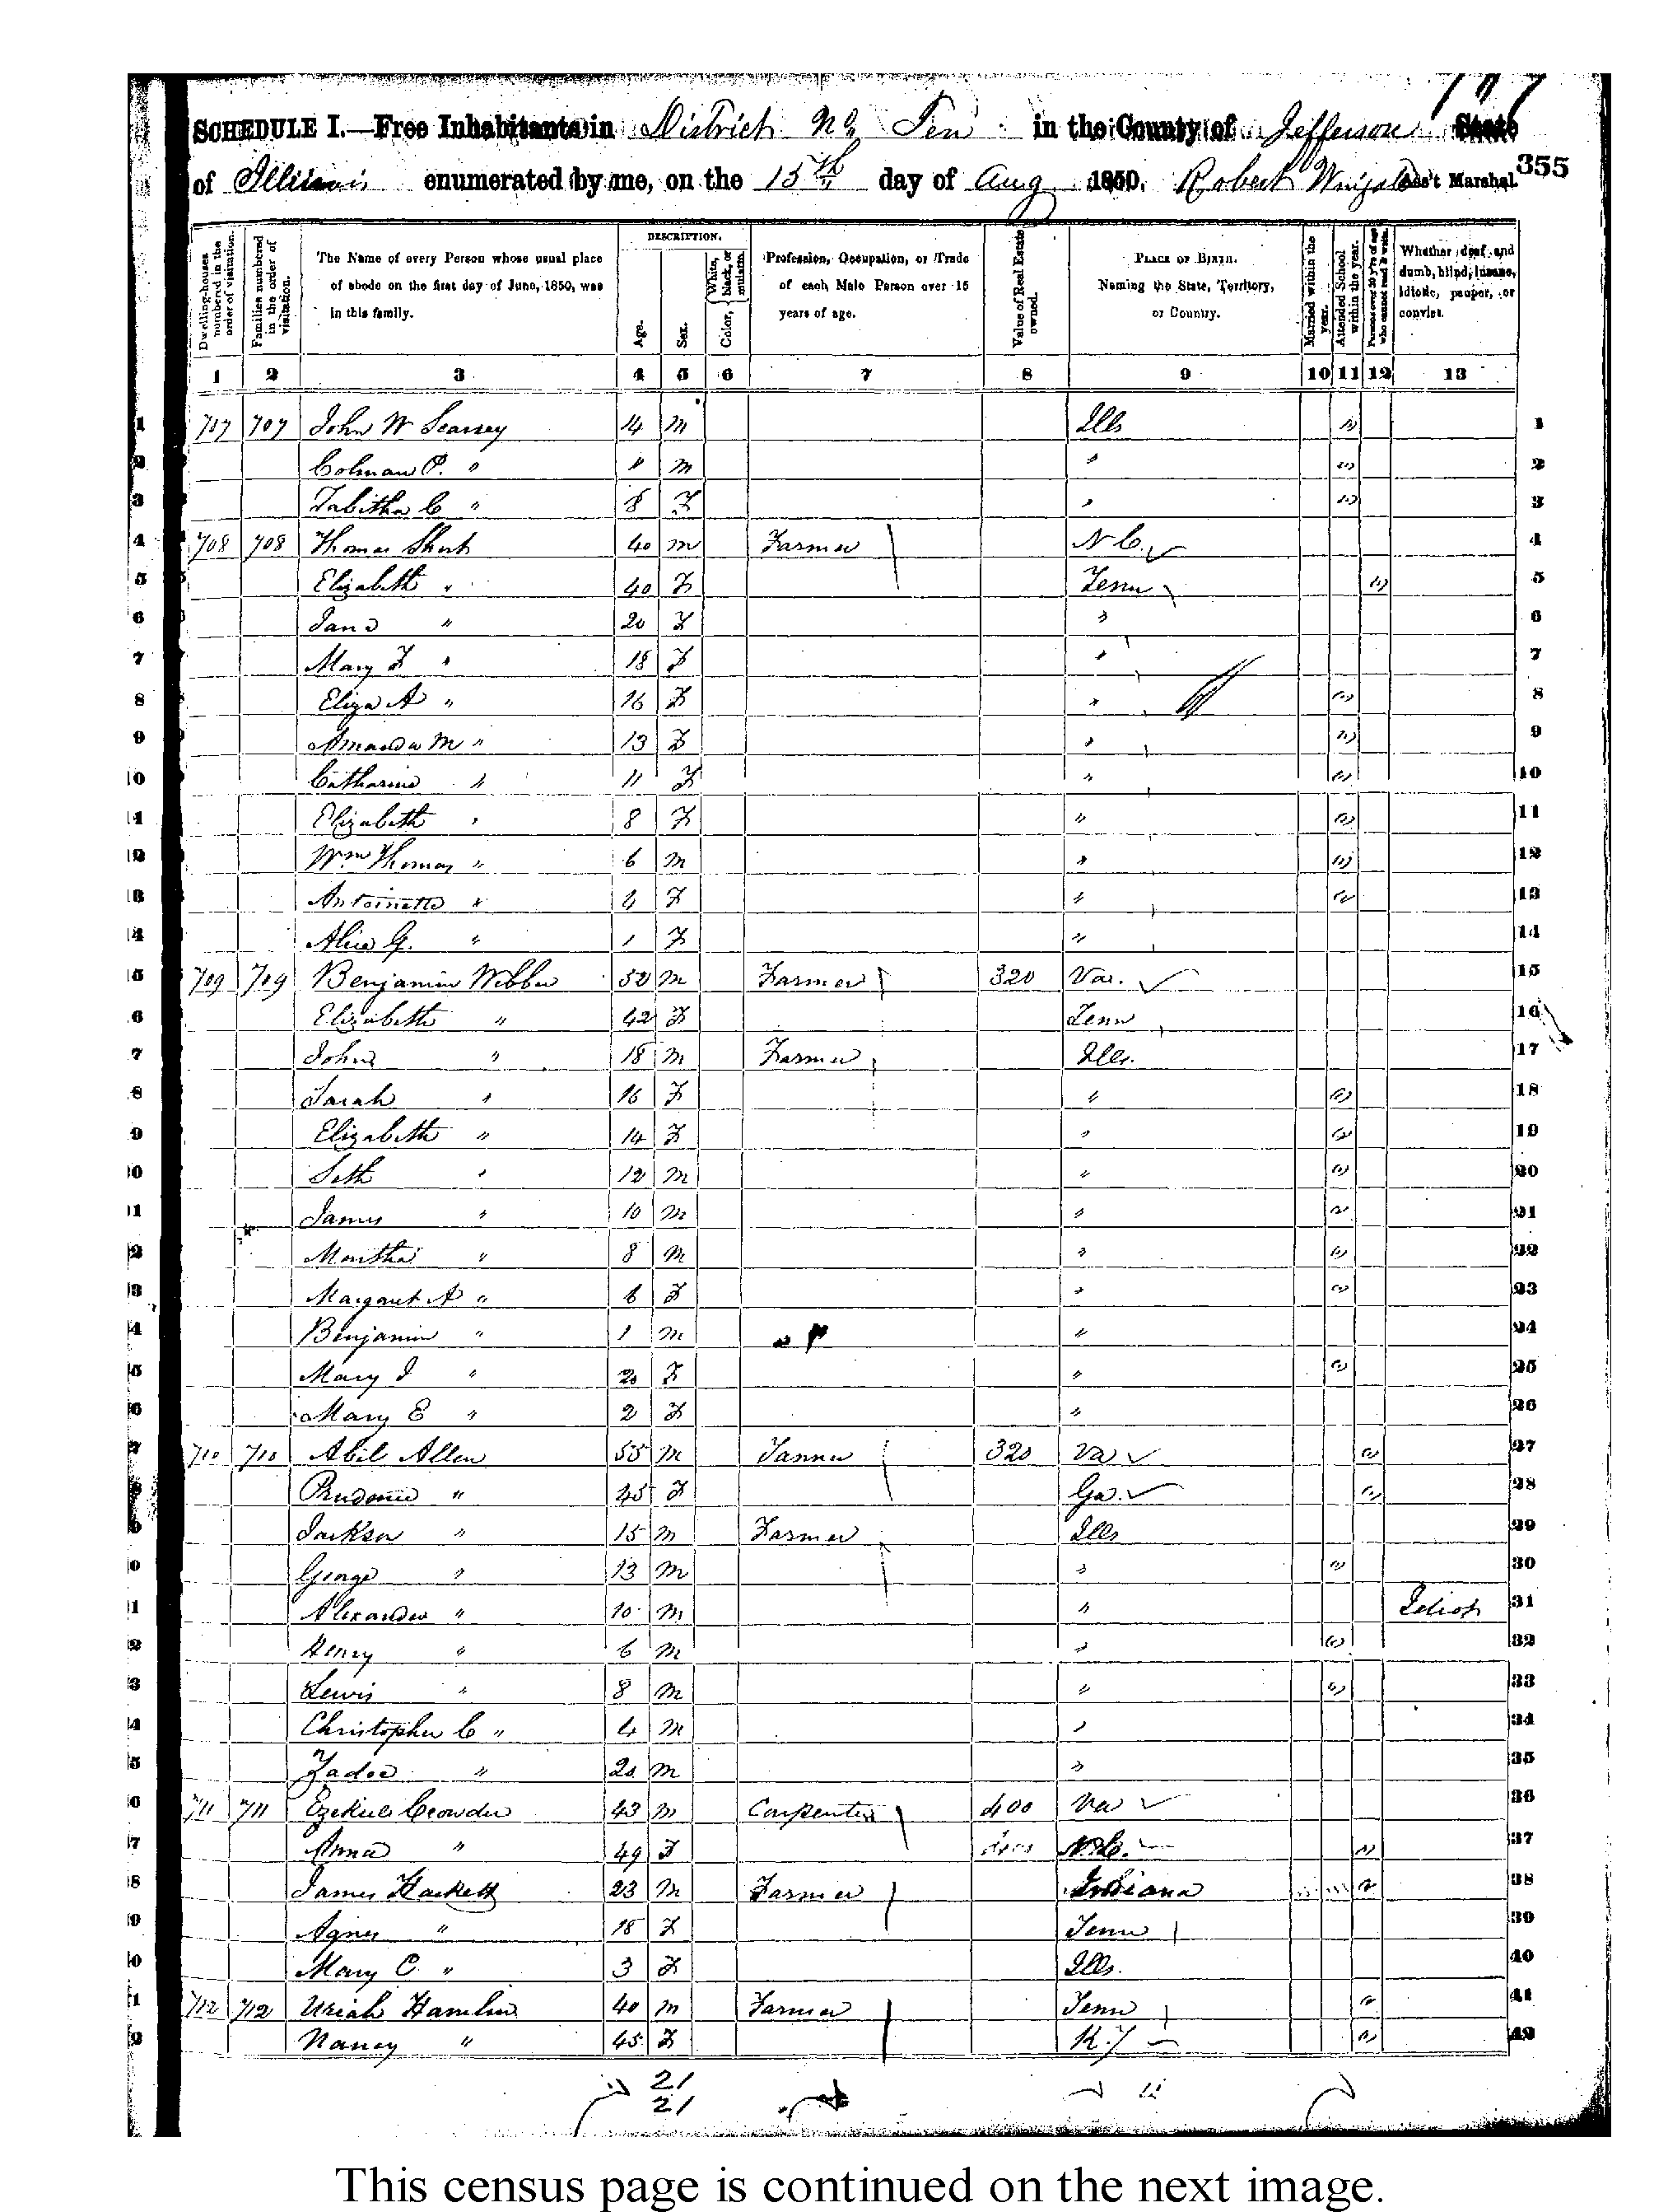 SCHEDULE I.—Free Inhabitants in District No. Ten in the County of Jefferson State
of Illinois enumerated by me, on the 15th day of Aug 1850. Robert Ass't Marshal. 355
DESCRIPTION.
Dwelling-houses numbered in the order of visitation.
Families numbered in the order of visitation.
The Name of every Person whose usual place of abode on the first day of June, 1850, was in this family.
Age.
Sex.
Color, { White, black, or mulatto.
Profession, Occupation, or Trade of each Male Person over 15 years of age.
Value of Real Estate owned.
PLACE OF BIRTH. Naming the State, Territory, or Country.
Married within the year.
Attended School within the year.
Persons over 20 y'rs of age who cannot read & write.
Whether deaf and dumb, blind, insane, idiotic, pauper, or convict.
1 2 3 4 5 6 7 8 9 10 11 12 13
1 707 707 John W 14 m Ills 1
2 Colman P. " " m " 2
3 Tabitha C " 8 F " 3
4 708 708 Thomas Short 40 m Farmer N C. 4
5 Elizabeth " 40 F Tenn 5
6 Jane " 20 F " 6
7 Mary F " 18 F " 7
8 Eliza A " 16 F " 8
9 Amanda M " 13 F " 9
10 Catharine " 11 F " 10
11 Elizabeth " 8 F " 11
12 Wm Thomas " 6 m " 12
13 Antoinette " 4 F " 13
14 Alice G. " 1 F " 14
15 709 709 Benjamin Webber 52 m Farmer 320 Va. 15
16 Elizabeth " 42 F Tenn 16
17 John " 18 m Farmer Ills. 17
18 Sarah " 16 F " 18
19 Elizabeth " 14 F " 19
20 Seth " 12 m " 20
21 James " 10 m " 21
22 Martha " 8 m " 22
23 Margaret A " 6 F " 23
24 Benjamin " 1 m " 24
25 Mary J " 20 F " 25
26 Mary E " 2 F " 26
27 710 710 Abil Allen 55 m Tanner 320 Va 27
28 Prudence " 45 F Ga. 28
29 Jackson " 15 m Farmer Ills 29
30 George " 13 m " 30
31 Alexander " 10 m " Idiot 31
32 Henry " 6 m " 32
33 Lewis " 8 m " 33
34 Christopher C " 4 m " 34
35 Zadoc " 20 m " 35
36 711 711 Ezekiel Crowder 43 m Carpenter 400 Va 36
37 Anna " 49 F N.C. 37
38 James Hackett 23 m Farmer Indiana 38
39 Agnes " 18 F Tenn 39
40 Mary C. " 3 F Ills. 40
41 712 712 Uriah Hamlin 40 m Farmer Tenn 41
42 Nancy " 45 F K.Y 42
21
21
This census page is continued on the next image.